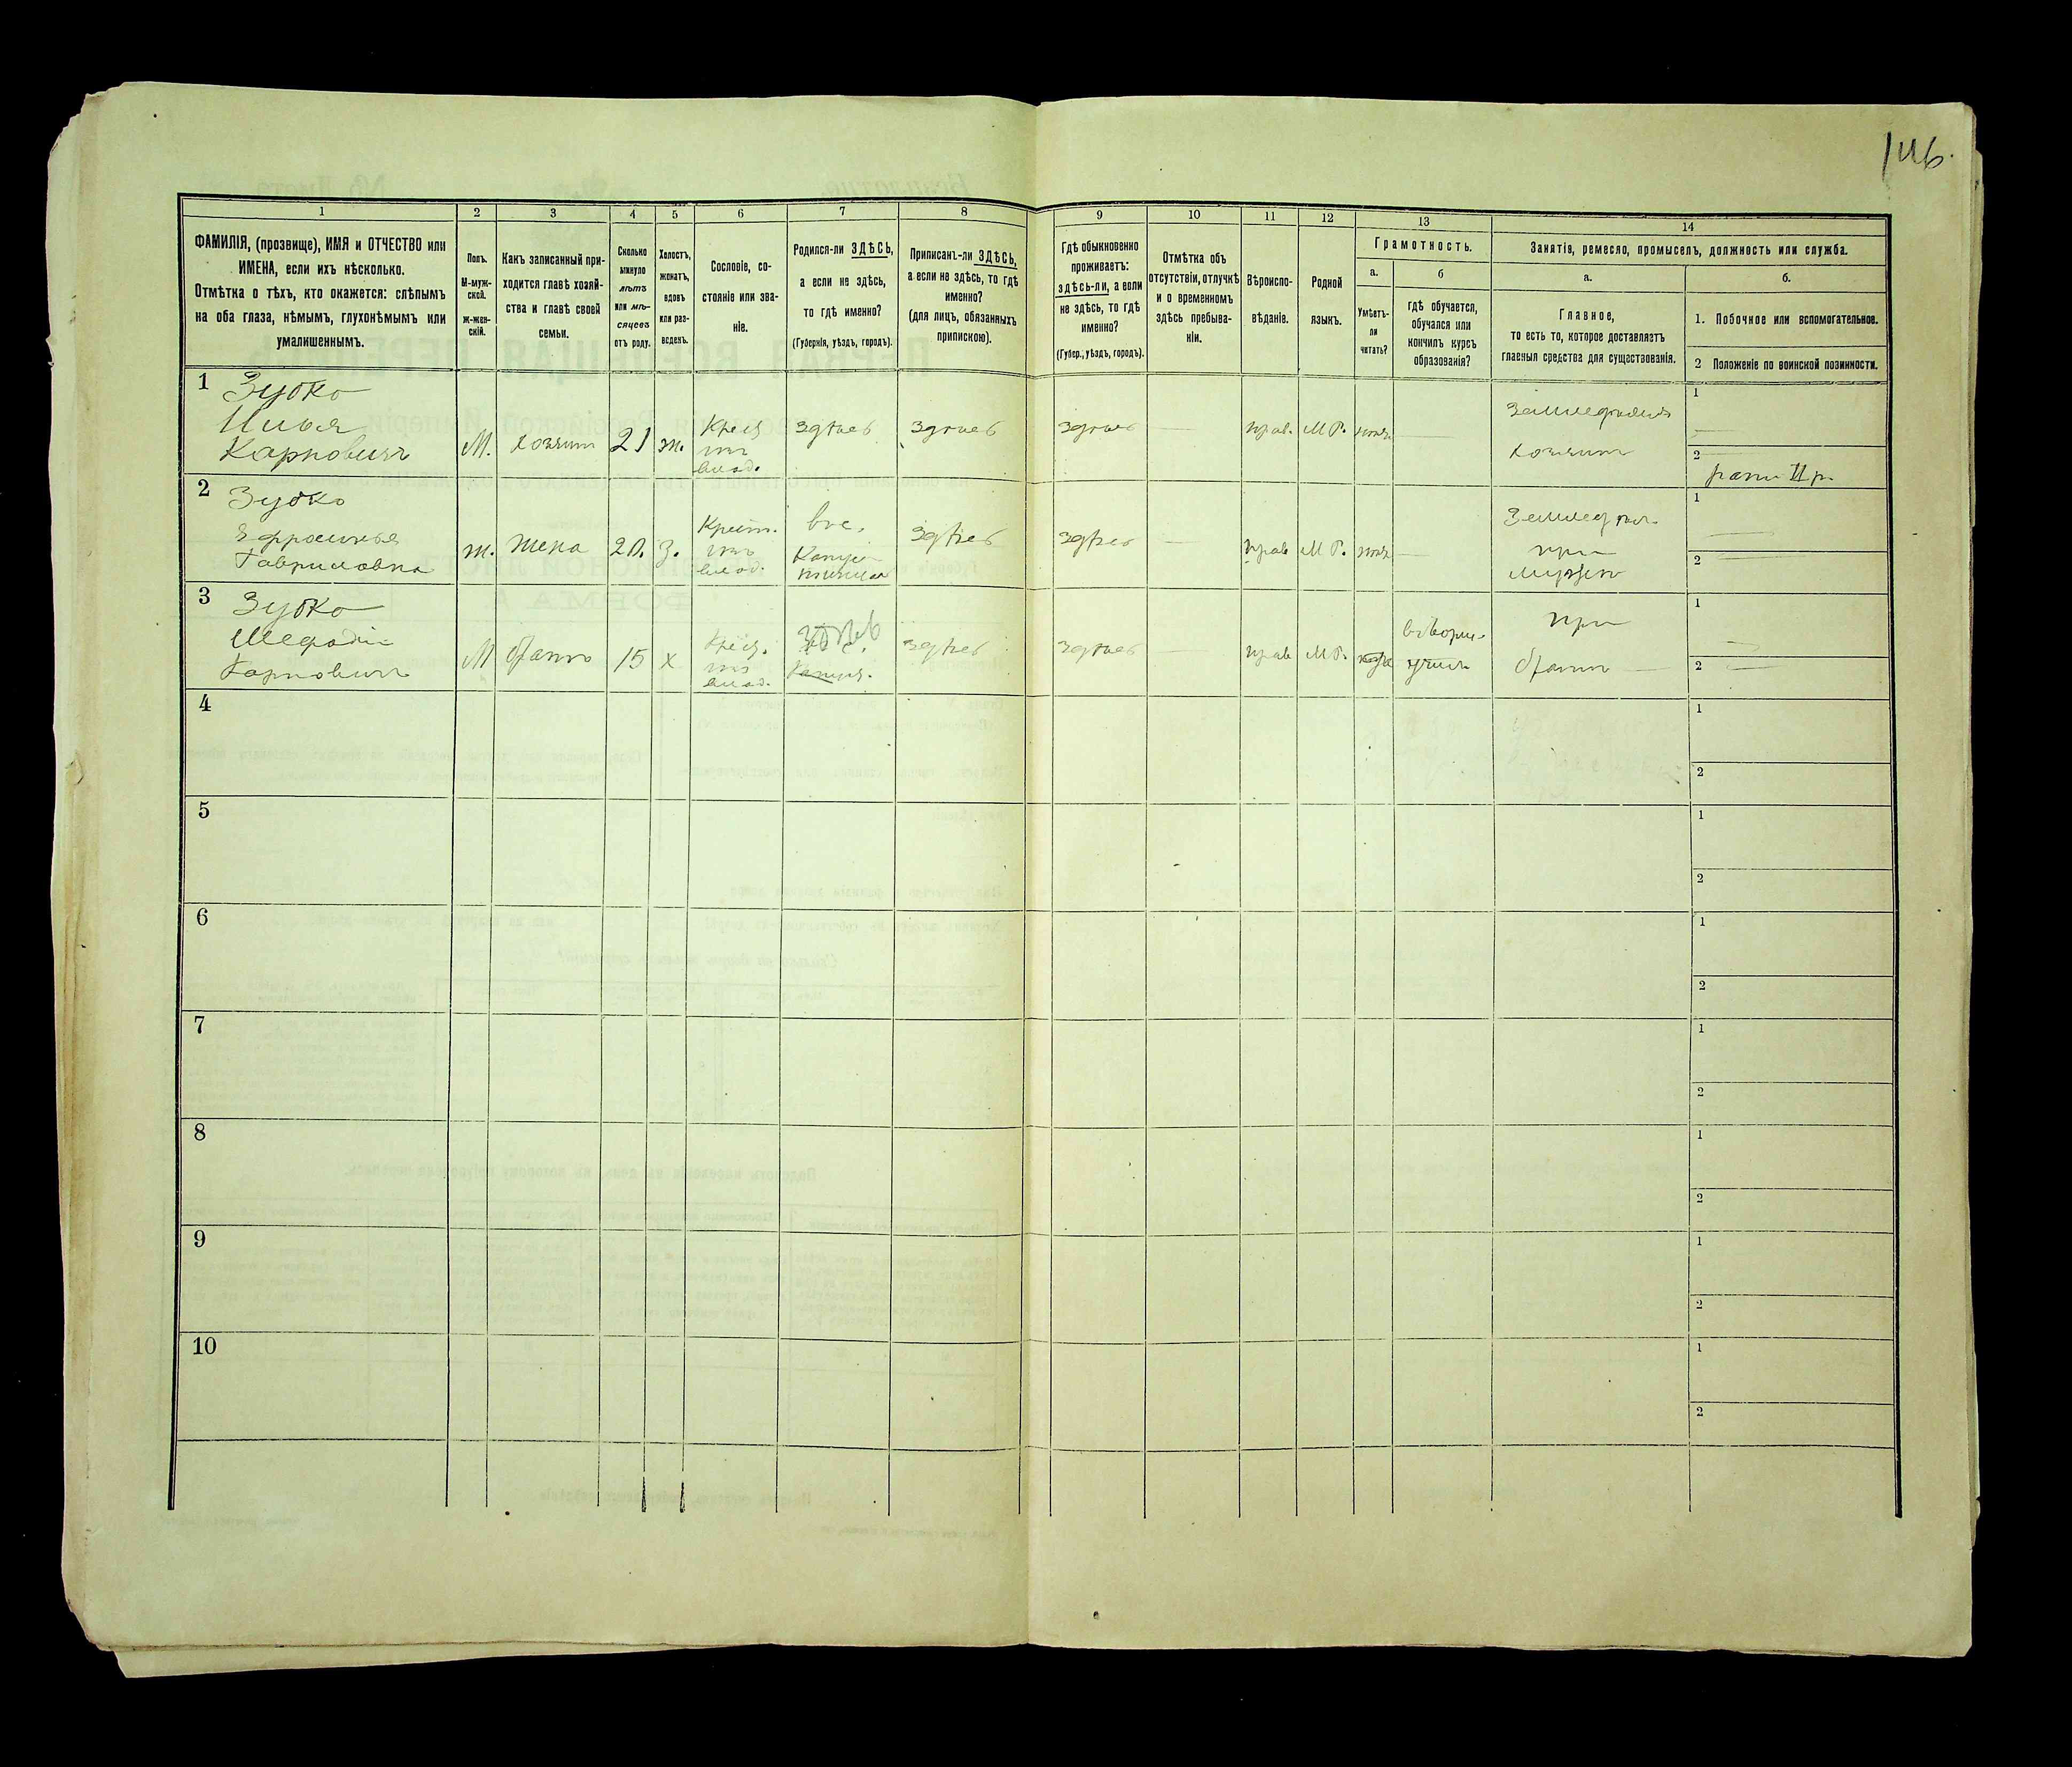 146.
1 2 3 4 5 6 7 8 9 10 11 12 13 14
ФАМИЛІЯ, (прозвище), ИМЯ и ОТЧЕСТВО или
ИМЕНА, если ихъ нѣсколько.
Отмѣтка о тѣхъ, кто окажется: слѣпымъ
на оба глаза, нѣмымъ, глухонѣмымъ или
умалишеннымъ.
Полъ.
М-муж-
ской.
ж-жен-
скій.
Какъ записанный при-
ходится главѣ хозяй-
ства и главѣ своей
семьи.
Сколько
минуло
лѣтъ
или мѣ-
сяцевъ
отъ роду.
Холостъ,
женатъ,
вдовъ
или раз-
веденъ.
Сословіе, со-
стояніе или зва-
ніе.
Родился-ли ЗДѢСЬ,
а если не здѣсь,
то гдѣ именно?
(Губернія, уѣздъ, городъ).
Приписанъ-ли ЗДѢСЬ,
а если не здѣсь, то гдѣ
именно?
(для лицъ, обязанныхъ
припискою).
Гдѣ обыкновенно
проживаетъ:
здѣсь-ли, а если
не здѣсь, то гдѣ
именно?
(Губер., уѣздъ, городъ).
Отмѣтка объ
отсутствіи, отлучкѣ
и о временномъ
здѣсь пребыва-
ніи.
Вѣроиспо-
вѣданіе.
Родной
языкъ.
Грамотность.
а.
Умѣетъ-
ли
читать?
б
гдѣ обучается,
обучался или
кончилъ курсъ
образованія?
Занятія, ремесло, промыселъ, должность или служба.
а.
Главное,
то есть то, которое доставляетъ
главныя средства для существованія.
б.
1. Побочное или вспомогательное.
2 Положеніе по воинской повинности.
1 Зубко
Илья
Карповичъ
М.
хозяинъ
21
ж.
Крест
изъ
влад.
здѣсь
здѣсь
здѣсь
—
прав.
М Р.
нѣтъ
—
Земледѣлія
хозяинъ
1
—
2
ратн II р.
2 Зубко
Ефросинья
Гавриловна
ж.
жена
20.
З.
Крест.
изъ
влад.
здѣсь
здѣсь
—
прав
М Р.
нѣтъ
—
Земледѣл.
при
мужѣ
1
—
2
—
3 Зубко
Карповичъ
М
братъ
15
х
Крест.
изъ
влад.
здѣсь
здѣсь
здѣсь
—
прав
М Р.
при
братѣ —
1
—
2
—
4
1
2
5
1
2
6
1
2
7
1
2
8
1
2
9
1
2
10
1
2